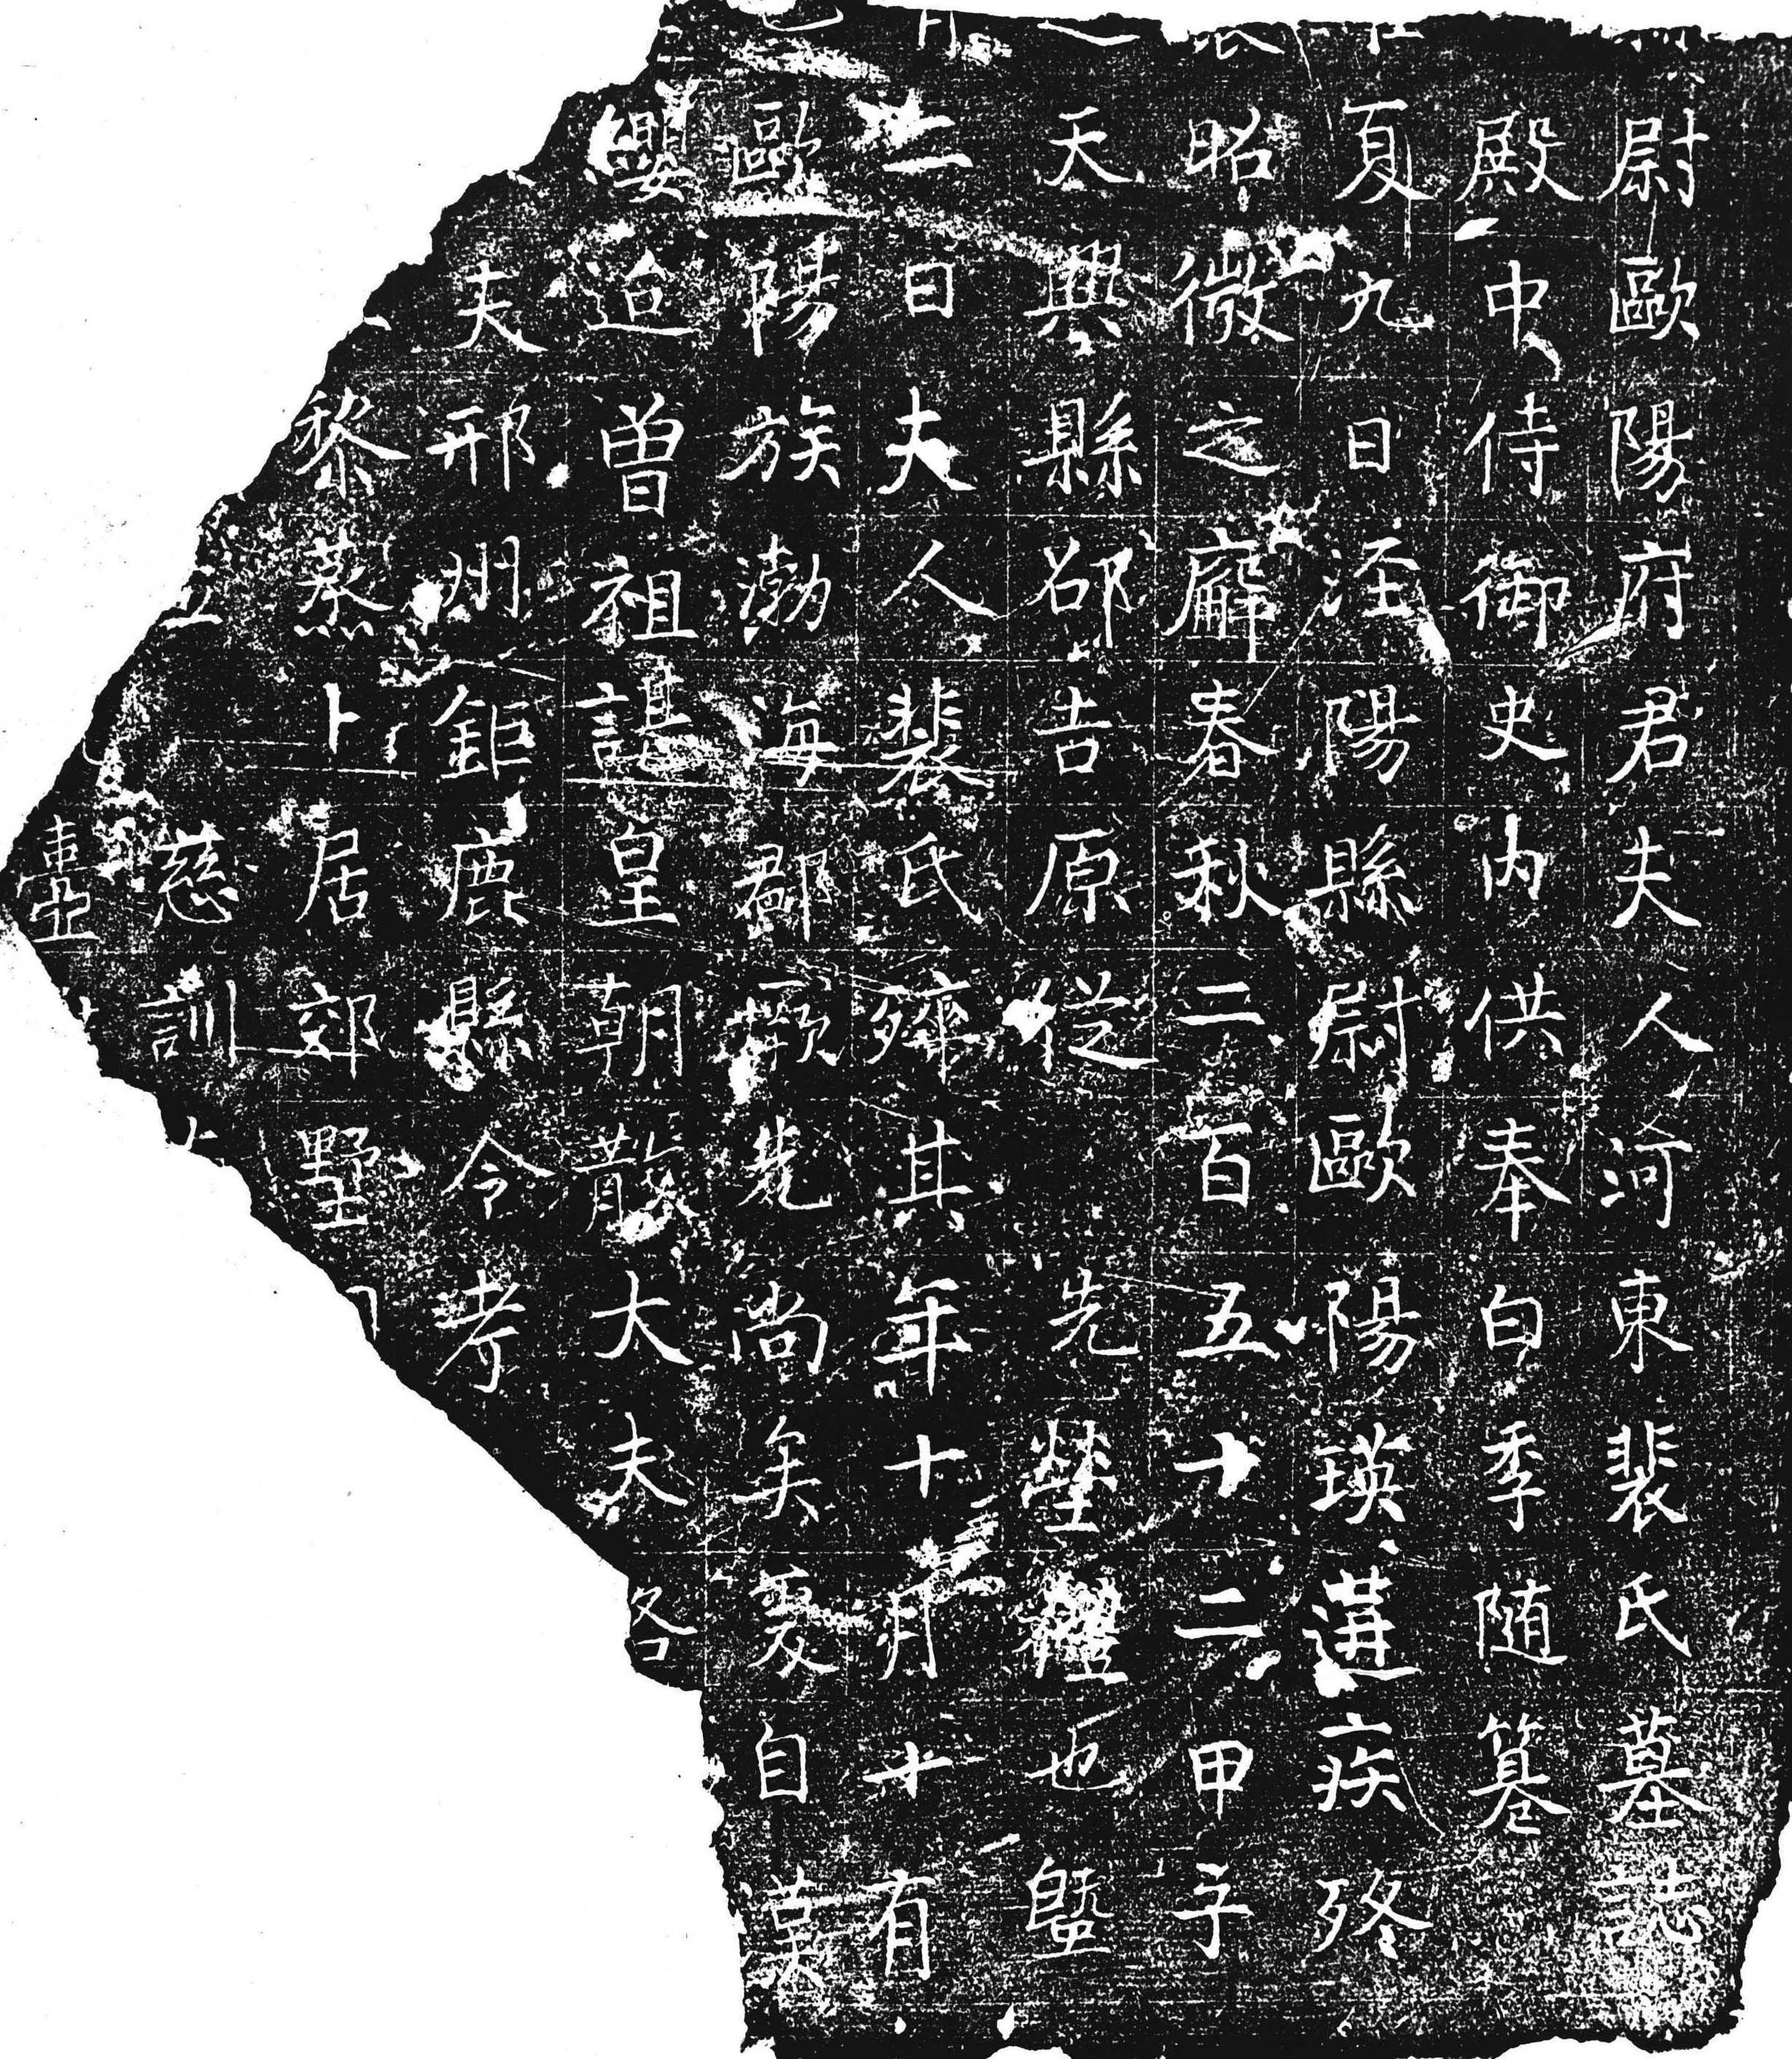 尉歐陽府君夫人河東裴氏墓誌
殿中侍御史內供奉白季隨篹
夏九日涇陽縣尉歐陽瑛遘疾終
昭微之廨春秋二百五十二甲子
天興縣邵吉原從先塋禮也曁
二日夫人裴氏殯其年十月十有
歐陽族渤海郡厥先尚矣爰自漢
纓迨曾祖諶皇朝散大夫
夫邢州鉅鹿縣令考
黎蒸卜居郊墅
慈訓
壼